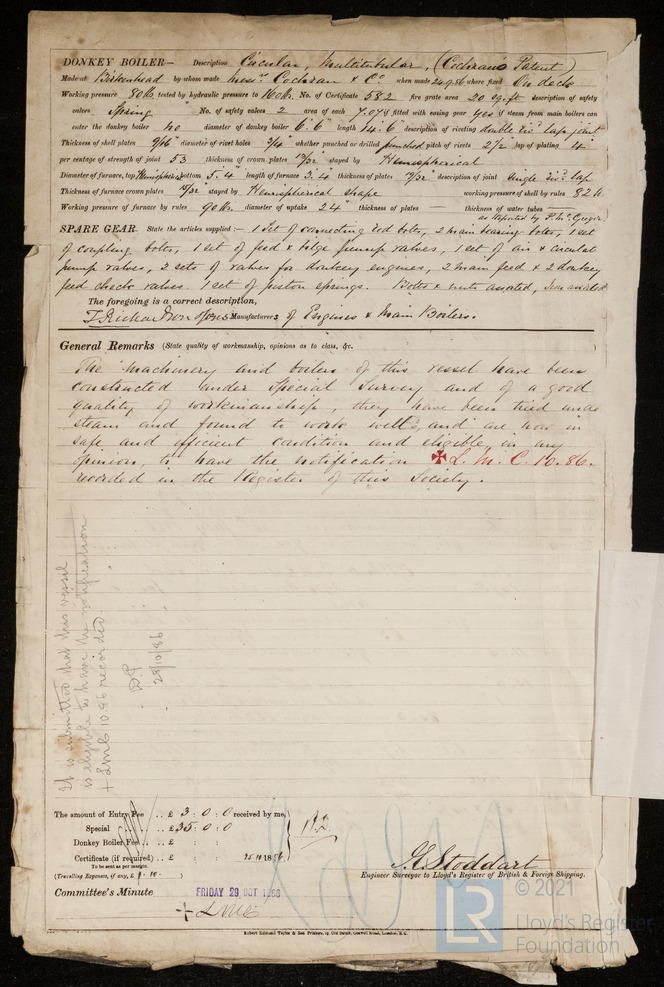 DONKEY BOILER— Description Circular, Multitubular, (Cochran's Patent)
Made at Birkenhead by whom made Messrs Cochran & Co when made 24.9.86 where fixed On deck
Working pressure 80 lbs tested by hydraulic pressure to 160 lbs. No. of Certificate 582 fire grate area 20 sq. ft description of safety
valves Spring No. of safety valves 2 area of each 7.079 fitted with easing gear yes if steam from main boilers can
enter the donkey boiler no diameter of donkey boiler 6'.6" length 14'.6" description of riveting double riv'd lap joint
Thickness of shell plates 9/16" diameter of rivet holes 3/4" whether punched or drilled punched pitch of rivets 2 1/2 lap of plating 4"
per centage of strength of joint 53 thickness of crown plates 19/32" stayed by Hemispherical
Diameter of furnace, top Hemispheric bottom 5.4 length of furnace 3.4 thickness of plates 19/32" description of joint single riv'd lap
Thickness of furnace crown plates 19/32" stayed by Hemispherical shape working pressure of shell by rules 82 lb
Working pressure of furnace by rules 90 lbs. diameter of uptake 24" thickness of plates thickness of water tubes
as reported by P. McGregor
SPARE GEAR. State the articles supplied:— 1 set of connecting rod bolts, 2 main bearing bolts, 1 set
of coupling bolts, 1 set of feed & bilge pump valves, 1 set of air & circulat
pump valves, 2 sets of valves for donkey engines, 2 main feed & 2 donkey
feed check valves 1 set of piston springs. Bolts & nuts assorted, Iron assorted
The foregoing is a correct description,
T. Richardson & Sons Manufacturers of Engines & Main Boilers.
General Remarks (State quality of workmanship, opinions as to class, &c. )
The machinery and boilers of this vessel have been
constructed under Special Survey and of a good
quality of workmanship, they have been tried under
steam and found to work well, and are now in
safe and efficient condition and eligible in my
opinion, to have the notification ✠ L. M. C. 10.86.
recorded in the Register of this Society.
It is submitted that this vessel
is eligible to have the notification
+ LMC 10.86 recorded.
28/10/86
The amount of Entry Fee .. £ 3 : 0 : 0 received by me,
Special .. .. £ 35 : 0 : 0
Donkey Boiler Fee .. £ : :
Certificate (if required) .. £ : : 25.10.1886
To be sent as per margin.
(Travelling Expenses, if any, £ )
J. Stoddart
Engineer Surveyor to Lloyd's Register of British & Foreign Shipping.
Committee's Minute FRIDAY 29 OCT 1886
+ LMC
Robert Edmund Taylor & Son Printers, 19, Old Street, Goswell Road, London, E.C.
LR
© 2021
Lloyd's Register
Foundation